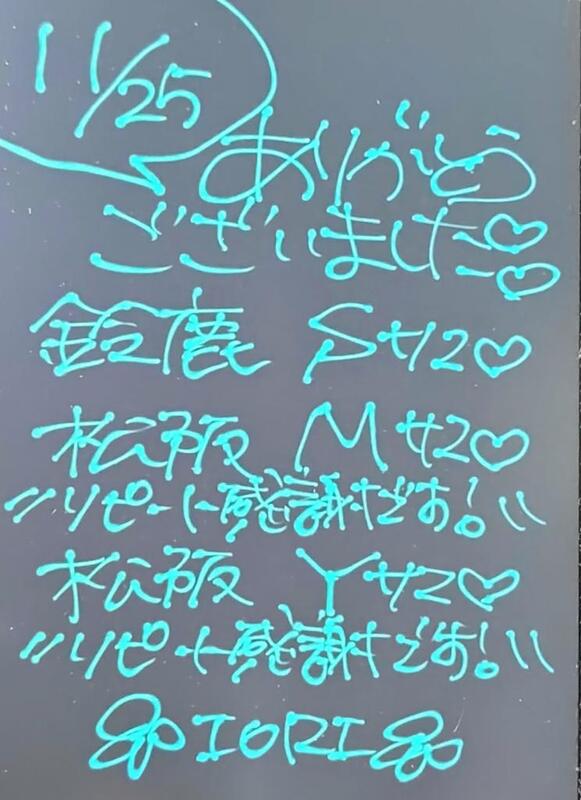 11/25
ありがとう
ございました♡♡
鈴鹿 Sサン♡
松阪 Mサン♡
〃リピート感謝です!〃
松阪 Yサン♡
〃リピート感謝です!〃
IORI